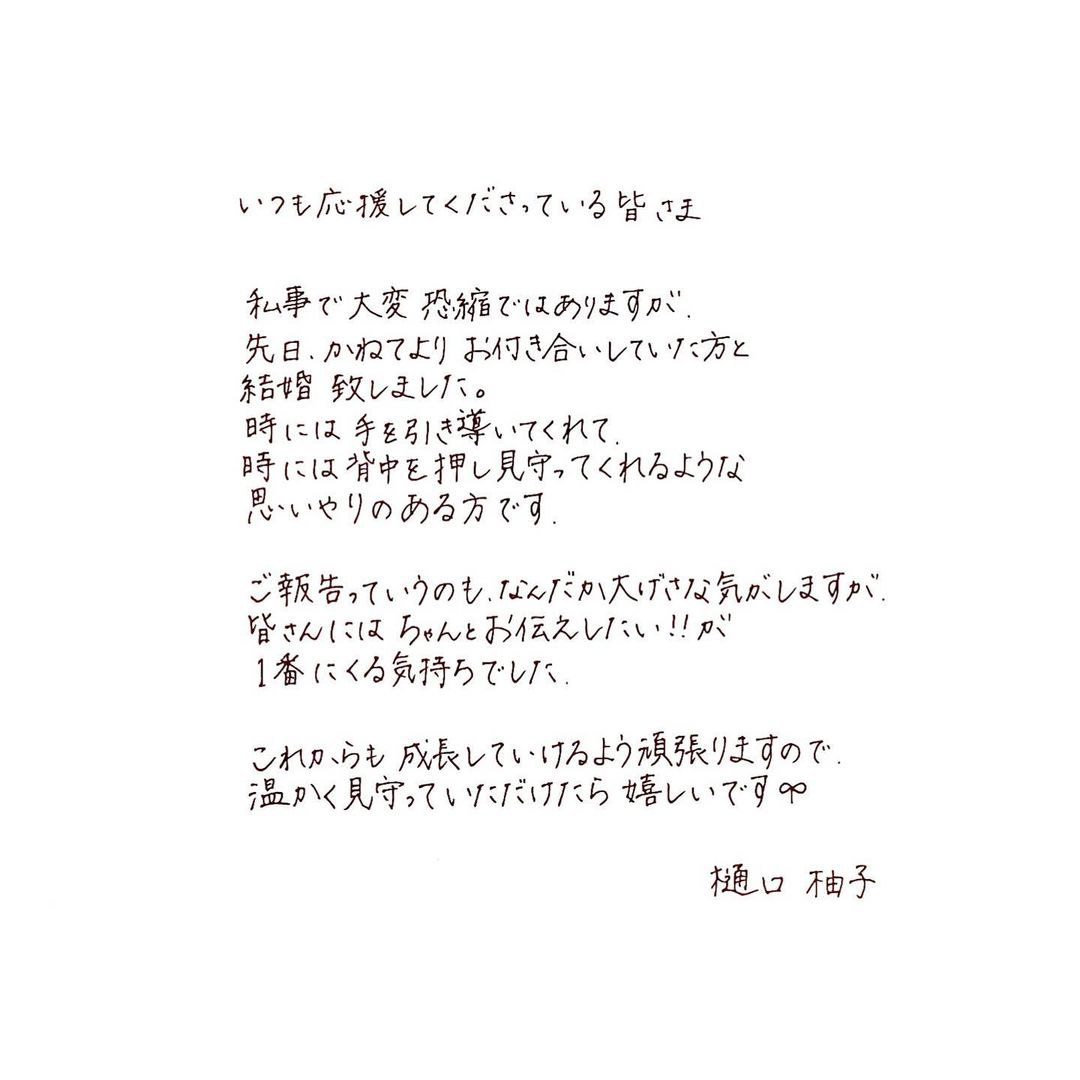 いつも応援してくださっている皆さま
私事で大変恐縮ではありますが、
先日、かねてよりお付き合いしていた方と
結婚致しました。
時には手を引き導いてくれて、
時には背中を押し見守ってくれるような
思いやりのある方です.
ご報告っていうのも、なんだか大げさな気がしますが、
皆さんにはちゃんとお伝えしたい!!が
1番にくる気持ちでした.
これからも成長していけるよう頑張りますので、
温かく見守っていただけたら嬉しいです
樋口 柚子